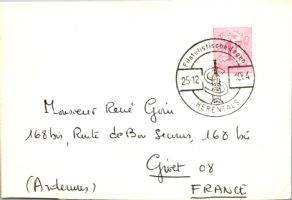 Filatelistische dagen
25-12
HERENTALS
Monsieur René Goin
168bis, Route de Bon Secours, 168 bis
Givet 08
(Ardennes) FRANCE